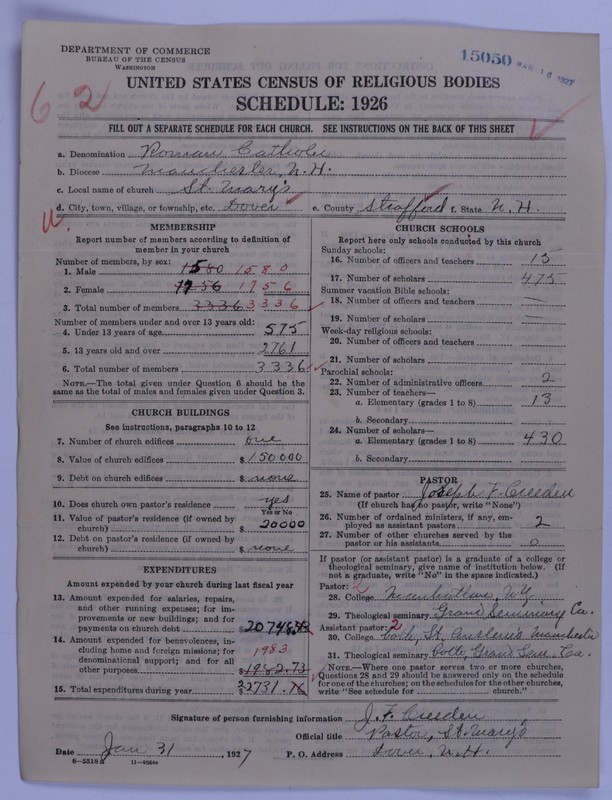 DEPARTMENT OF COMMERCE
BUREAU OF THE CENSUS
WASHINGTON
15050 MAR 16 1927
62
UNITED STATES CENSUS OF RELIGIOUS BODIES
SCHEDULE: 1926
FILL OUT A SEPARATE SCHEDULE FOR EACH CHURCH. SEE INSTRUCTIONS ON THE BACK OF THIS SHEET
a. Denomination Roman Catholic
b. Diocese Manchester, N.H.
c. Local name of church St. Mary's
d. City, town, village, or township, etc. Dover e. County Strafford f. State N.H.
MEMBERSHIP
Report number of members according to definition of
member in your church
Number of members, by sex:
1. Male 1580 1580
2. Female 1756 1756
3. Total number of members 3336 3336
Number of members under and over 13 years old:
4. Under 13 years of age 575
5. 13 years old and over 2761
6. Total number of members 3336
NOTE.—The total given under Question 6 should be
the same as the total of males and females given under Question 3.
CHURCH BUILDINGS
See instructions, paragraphs 10 to 12
7. Number of church edifices one
8. Value of church edifices $150000
9. Debt on church edifices $none
10. Does church own pastor's residence yes
Yes or No
11. Value of pastor's residence (if owned by
church) $20000
12. Debt on pastor's residence (if owned by
church) $none
EXPENDITURES
Amount expended by your church during last fiscal year
13. Amount expended for salaries, repairs,
and other running expenses; for im-
provements or new buildings; and for
payments on church debt
14. Amount expended for benevolences, in-
cluding home and foreign missions; for
denominational support; and for all
other purposes 1983 $1982.73
15. Total expenditures during year
CHURCH SCHOOLS
Report here only schools conducted by this church
Sunday schools:
16. Number of officers and teachers 13
17. Number of scholars 475
Summer vacation Bible schools:
18. Number of officers and teachers —
19. Number of scholars —
Week-day religious schools:
20. Number of officers and teachers
21. Number of scholars
Parochial schools:
22. Number of administrative officers 2
23. Number of teachers—
a. Elementary (grades 1 to 8) 13
b. Secondary
24. Number of scholars—
a. Elementary (grades 1 to 8) 430
b. Secondary
PASTOR
25. Name of pastor Joseph F. Creeden
(If church has no pastor, write "None")
26. Number of ordained ministers, if any, em-
ployed as assistant pastors 2
27. Number of other churches served by the
pastor or his assistants 0
If pastor (or assistant pastor) is a graduate of a college or
theological seminary, give name of institution below. (If
not a graduate, write "No" in the space indicated.)
Pastor: 2
28. College Manhattan, N.Y.
29. Theological seminary Grand Seminary Ca.
Assistant pastor: 2
30. College both, St. Anselm's Manchester
31. Theological seminary both, Grand Sem. Ca.
NOTE.—Where one pastor serves two or more churches,
Questions 28 and 29 should be answered only on the schedule
for one of the churches; on the schedules for the other churches,
write "See schedule for church."
Signature of person furnishing information J. F. Creeden
Official title Pastor, St. Mary's
Date Jan 31, 1927 P. O. Address Dover, N.H.